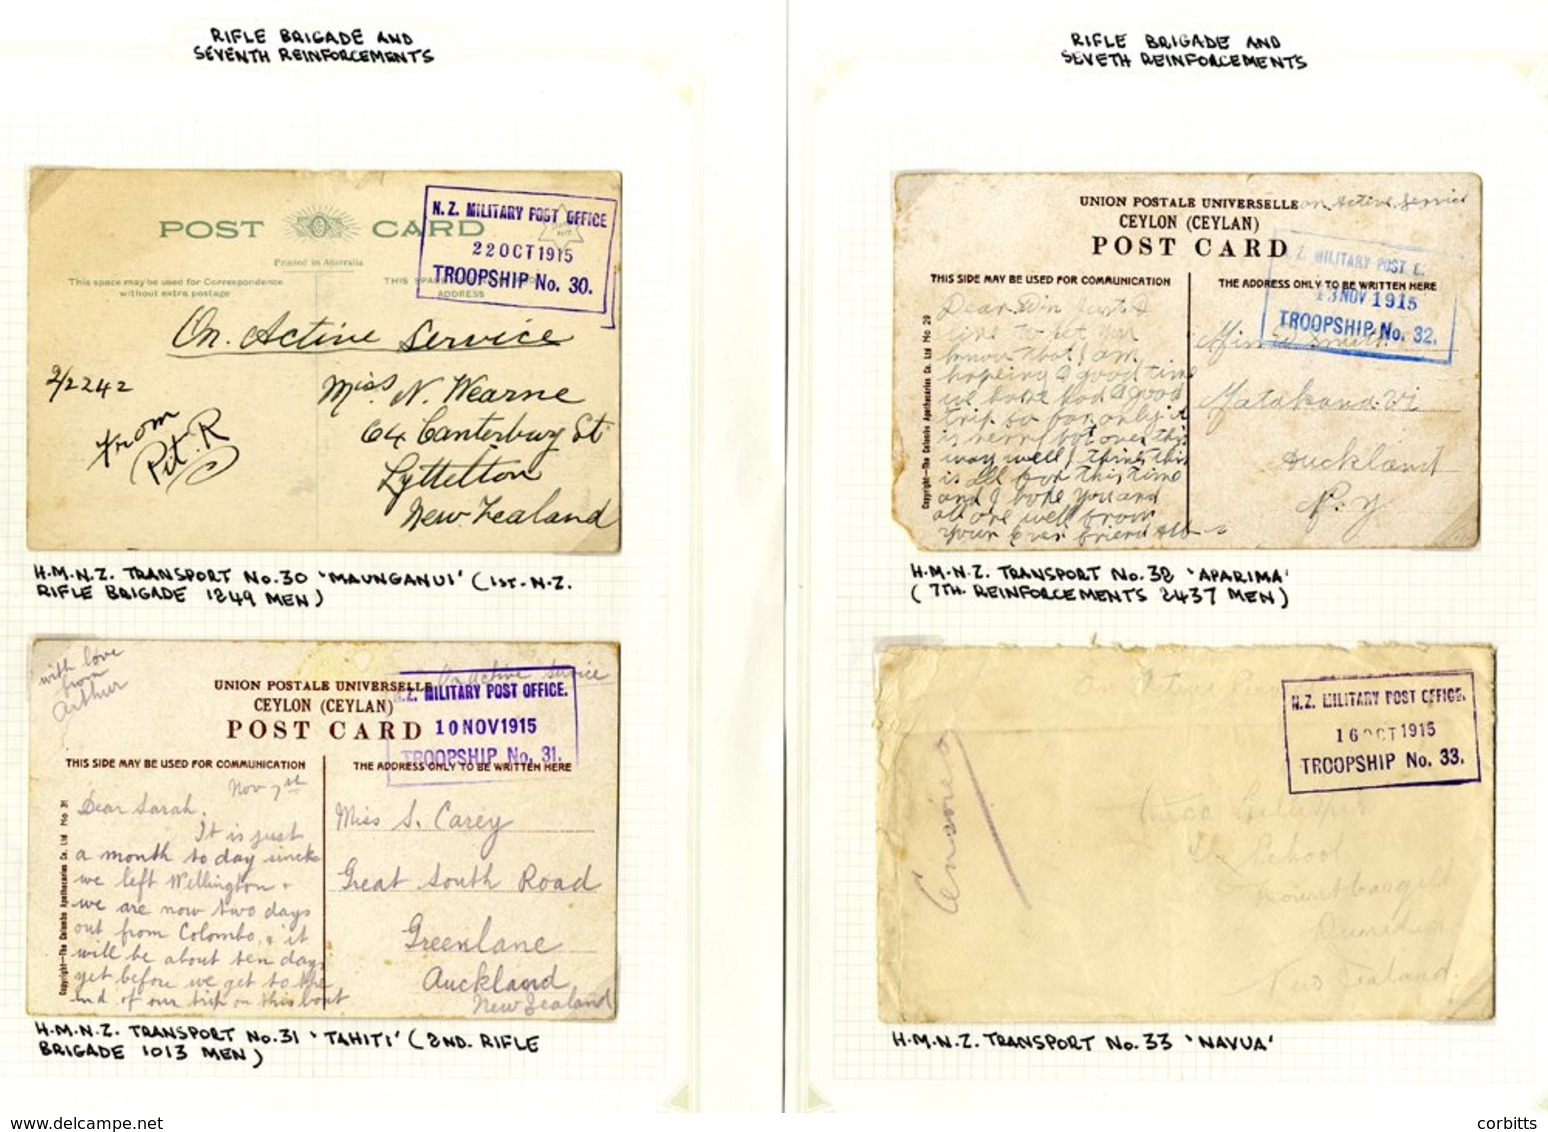 RIFLE BRIGADE AND
SEVENTH REINFORCEMENTS
POST CARD
Printed in Australia
This space may be used for Correspondence
without extra postage
THIS
ADDRESS
N.Z. MILITARY POST OFFICE
22 OCT 1915
TROOPSHIP No. 30.
On Active Service
2/2242
From
Pit. R
Miss N. Wearne
64 Canterbury St
Lyttelton
New Zealand
H.M.N.Z. TRANSPORT No.30 'MAUNGANUI' (1ST-N.Z.
RIFLE BRIGADE 1249 MEN)
with love
from
Arthur
On Active Service
UNION POSTALE UNIVERSELLE
CEYLON (CEYLAN)
POST CARD
N.Z. MILITARY POST OFFICE.
10 NOV 1915
TROOPSHIP No. 31.
THIS SIDE MAY BE USED FOR COMMUNICATION
THE ADDRESS ONLY TO BE WRITTEN HERE
Copyright—The Colombo Apothecaries Co. Ltd No 31
Nov 7st
Dear Sarah.
It is just
a month to day since
we left Wellington &
we are now two days
out from Colombo, & it
will be about ten days
yet before we get to the
end of our trip on this boat
Miss S. Carey
Great South Road
Greenlane
Auckland
New Zealand
H.M.N.Z. TRANSPORT No.31 'TAHITI' (2ND. RIFLE
BRIGADE 1013 MEN)
RIFLE BRIGADE AND
SEVETH REINFORCEMENTS
UNION POSTALE UNIVERSELLE
on Active Service
CEYLON (CEYLAN)
POST CARD
Z. MILITARY POST
13 NOV 1915
TROOPSHIP No. 32.
THIS SIDE MAY BE USED FOR COMMUNICATION
THE ADDRESS ONLY TO BE WRITTEN HERE
Copyright—The Colombo Apothecaries Co. Ltd No 29
Dear Win Just a
line to let you
know that I am
hopeing a good time
we have had a good
trip so far only it
is very hot over this
way well I think this
is all for this time
and I hope you and
all are well from
your Ever friend
Smith
Matakana
Auckland
N. Z
H.M.N.Z. TRANSPORT No.32 'APARIMA'
(7TH. REINFORCEMENTS 2437 MEN)
N.Z. MILITARY POST OFFICE.
16 OCT 1915
TROOPSHIP No. 33.
Censored
School
Mount Cargill
Dunedin
New Zealand.
H.M.N.Z. TRANSPORT No.33 'NAVUA'
www.delcampe.net
corbitts